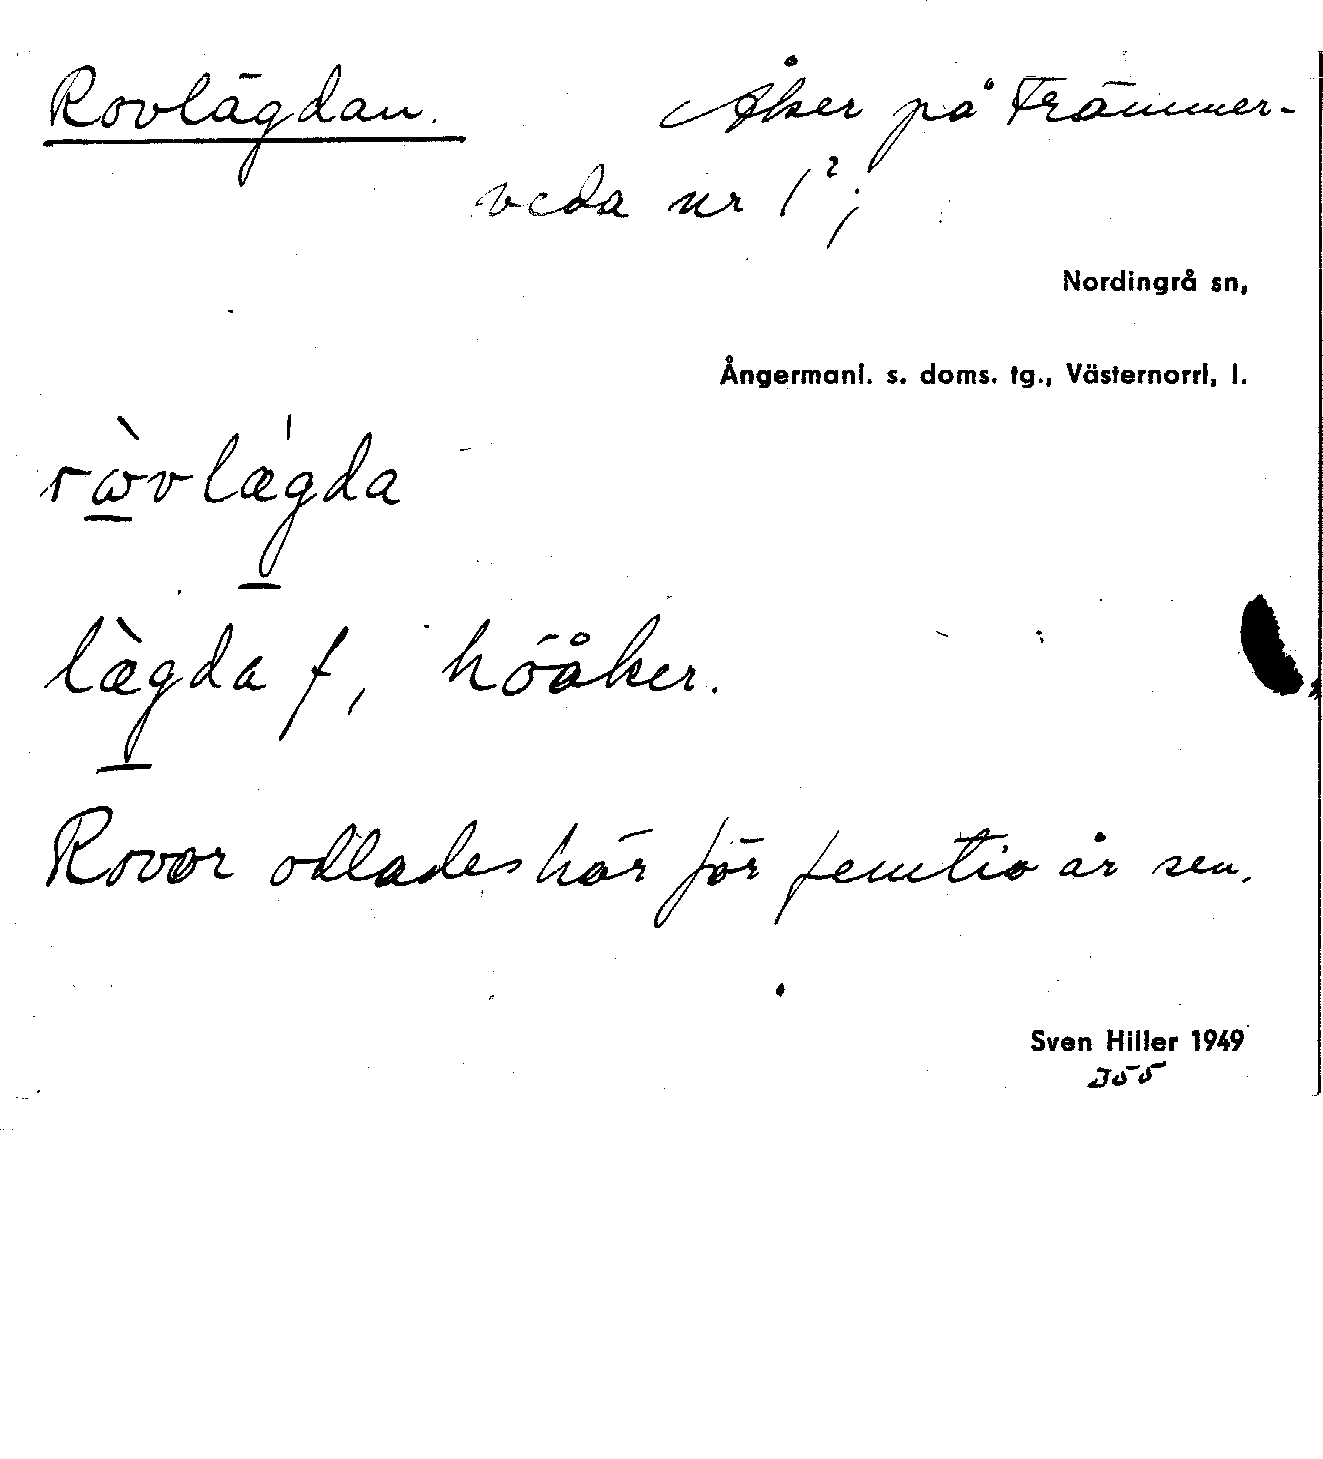 Rovlägdan. Åker på Främmer-
veda nr 1²;
Nordingrå sn,
Ångermanl. s. doms. tg., Västernorrl, l.
ròvlæ̍gda
læ̀gda f, höåker.
Rovor odlades här för femtio år sen.
Sven Hiller 1949